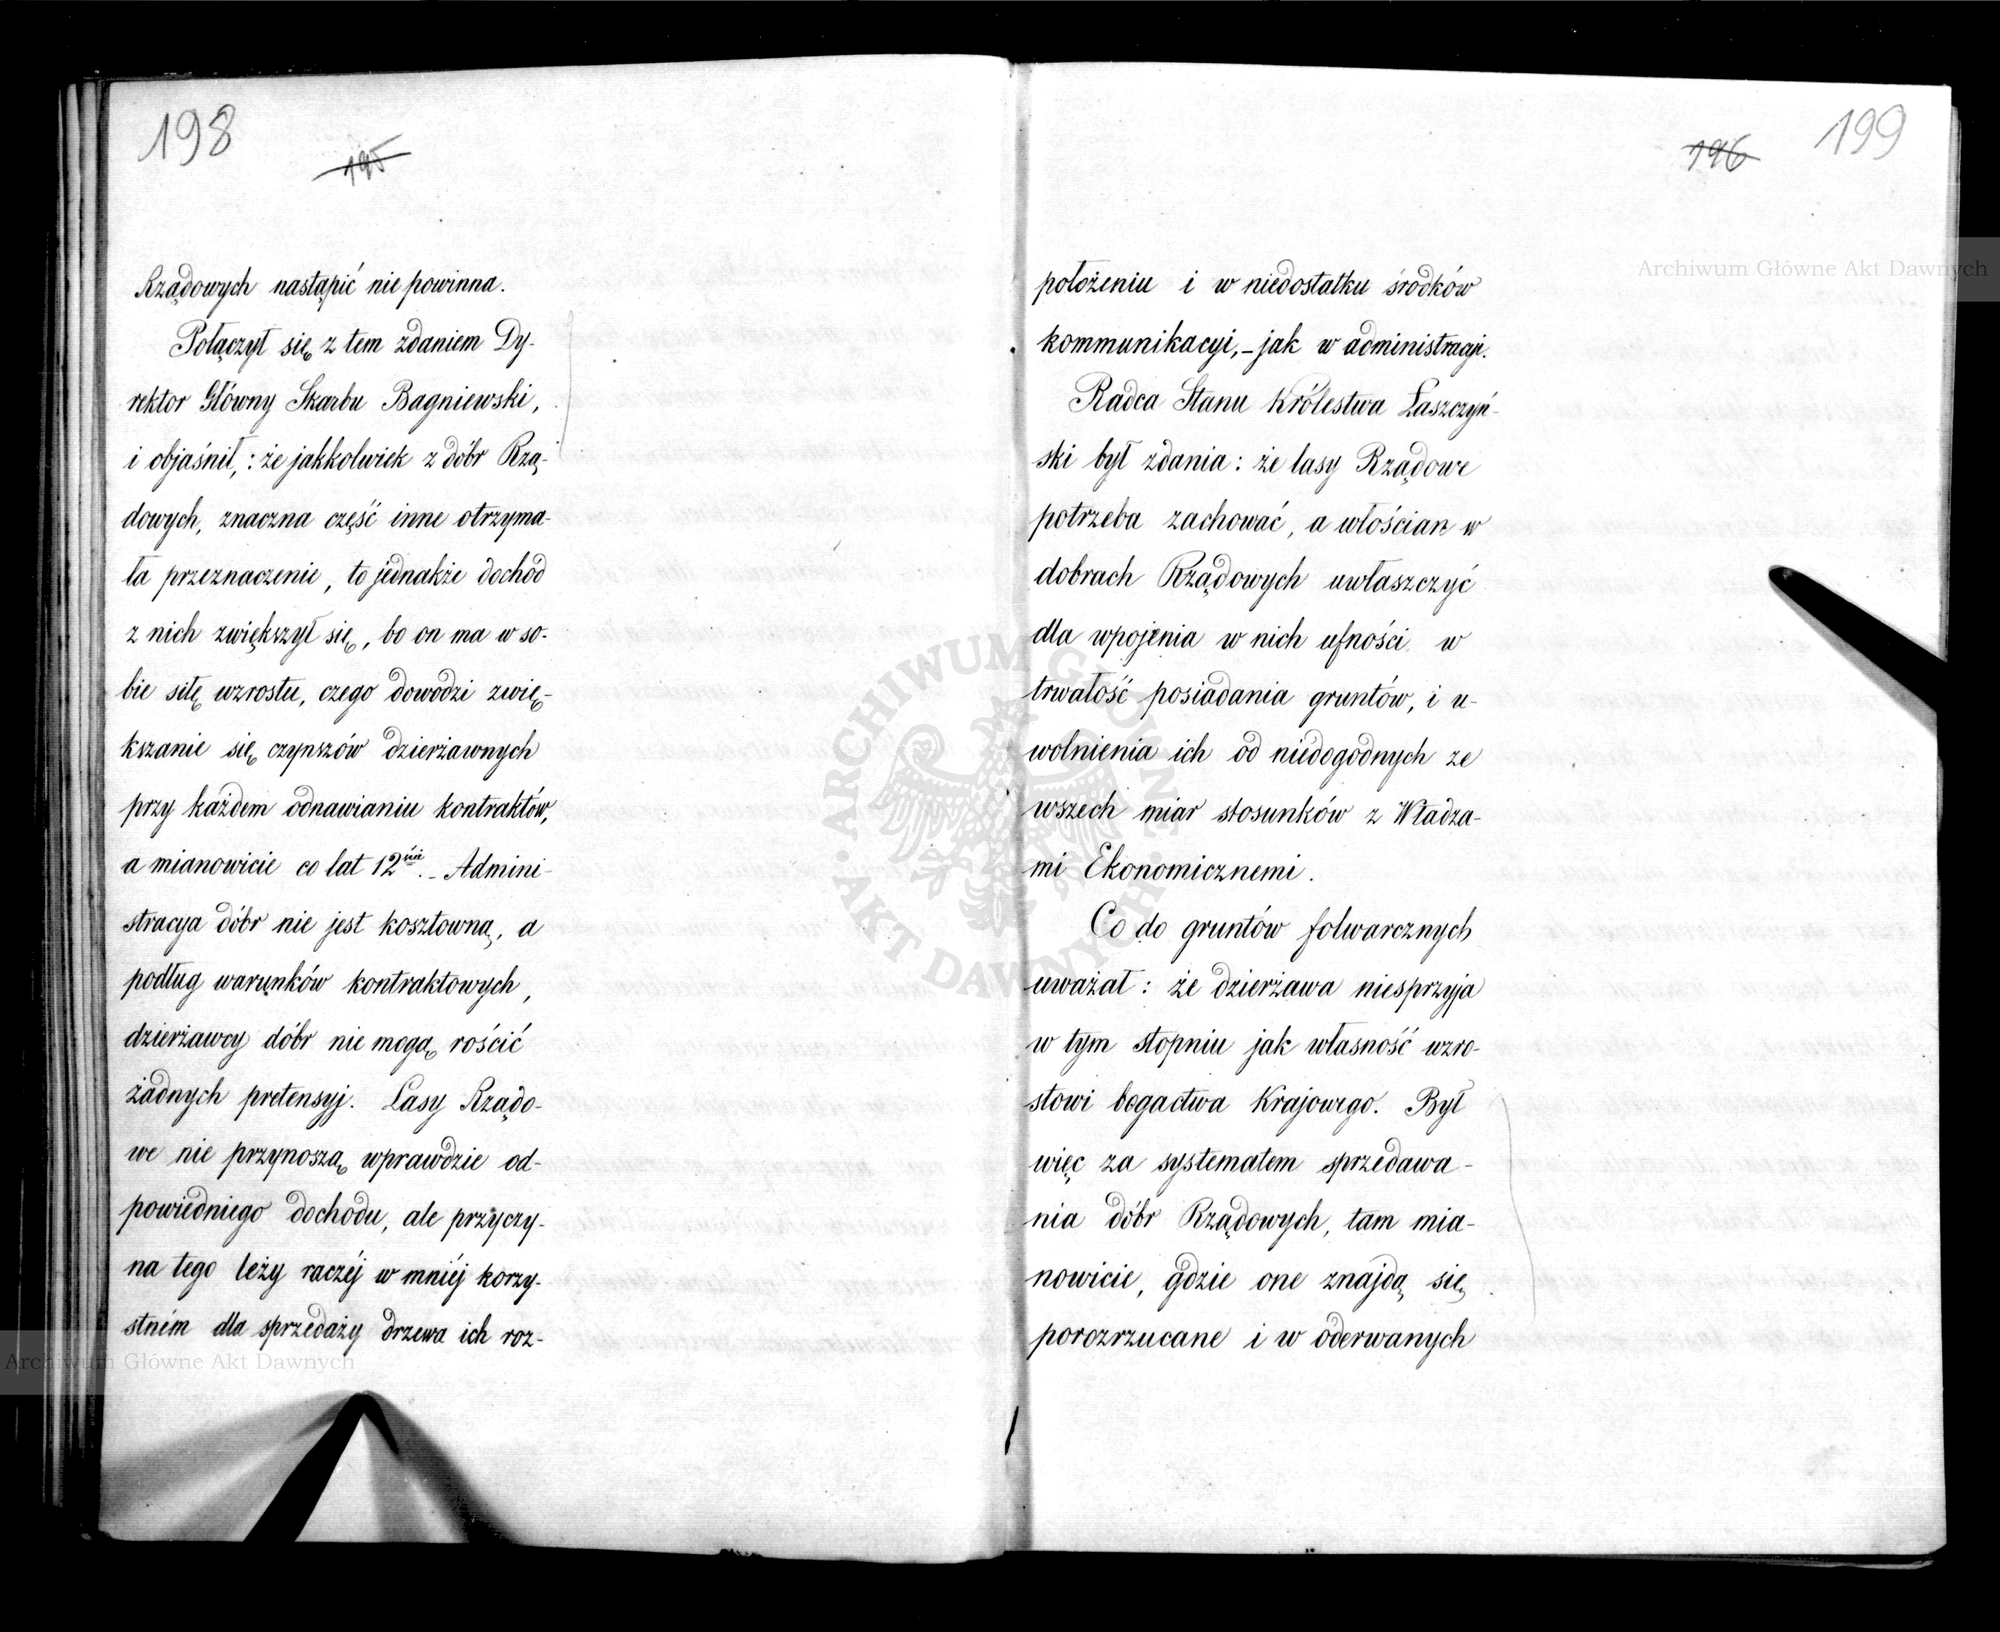 198
195
Rządowych nastąpić nie powinna.
Połączył się z tem zdaniem Dy-
rektor Główny Skarbu Bagniewski,
i objaśnił,: że jakkolwiek z dóbr Rzą-
dowych, znaczna część inne otrzyma-
ła przeznaczenie, to jednakże dochód
z nich zwiększył się, bo on ma w so-
bie siłę wzrostu, czego dowodzi zwię-
kszanie się czynszów dzierżawnych
przy każdem odnawianiu kontraktów,
a mianowicie co lat 12ście. – Admini-
stracya dóbr nie jest kosztowną, a
podług warunków kontraktowych,
dzierżawcy dóbr nie mogą rościć
żadnych pretensyj. Lasy Rządo-
we nie przynoszą wprawdzie od-
powiedniego dochodu, ale przyczy-
na tego leży raczéj w mniéj korzy-
stném dla sprzedaży drzewa ich roz-
199
196
położeniu i w niedostatku środków
kommunikacyi, – jak w administracyi.
Radca Stanu Królestwa Łaszczyń-
ski był zdania: że lasy Rządowe
potrzeba zachować, a włościan w
dobrach Rządowych uwłaszczyć
dla wpojenia w nich ufności w
trwałość posiadania gruntów, i u-
wolnienia ich od niedogodnych ze
wszech miar stosunków z Władza-
mi Ekonomicznemi.
Co do gruntów folwarcznych
uważał: że dzierżawa niesprzyja
w tym stopniu jak własność wzro-
stowi bogactwa Krajowego. Był
więc za systematem sprzedawa-
nia dóbr Rządowych, tam mia-
nowicie, gdzie one znajdą się
porozrzucane i w oderwanych
Archiwum Główne Akt Dawnych
Archiwum Główne Akt Dawnych
ARCHIWUM GŁÓWNE · AKT DAWNYCH ·